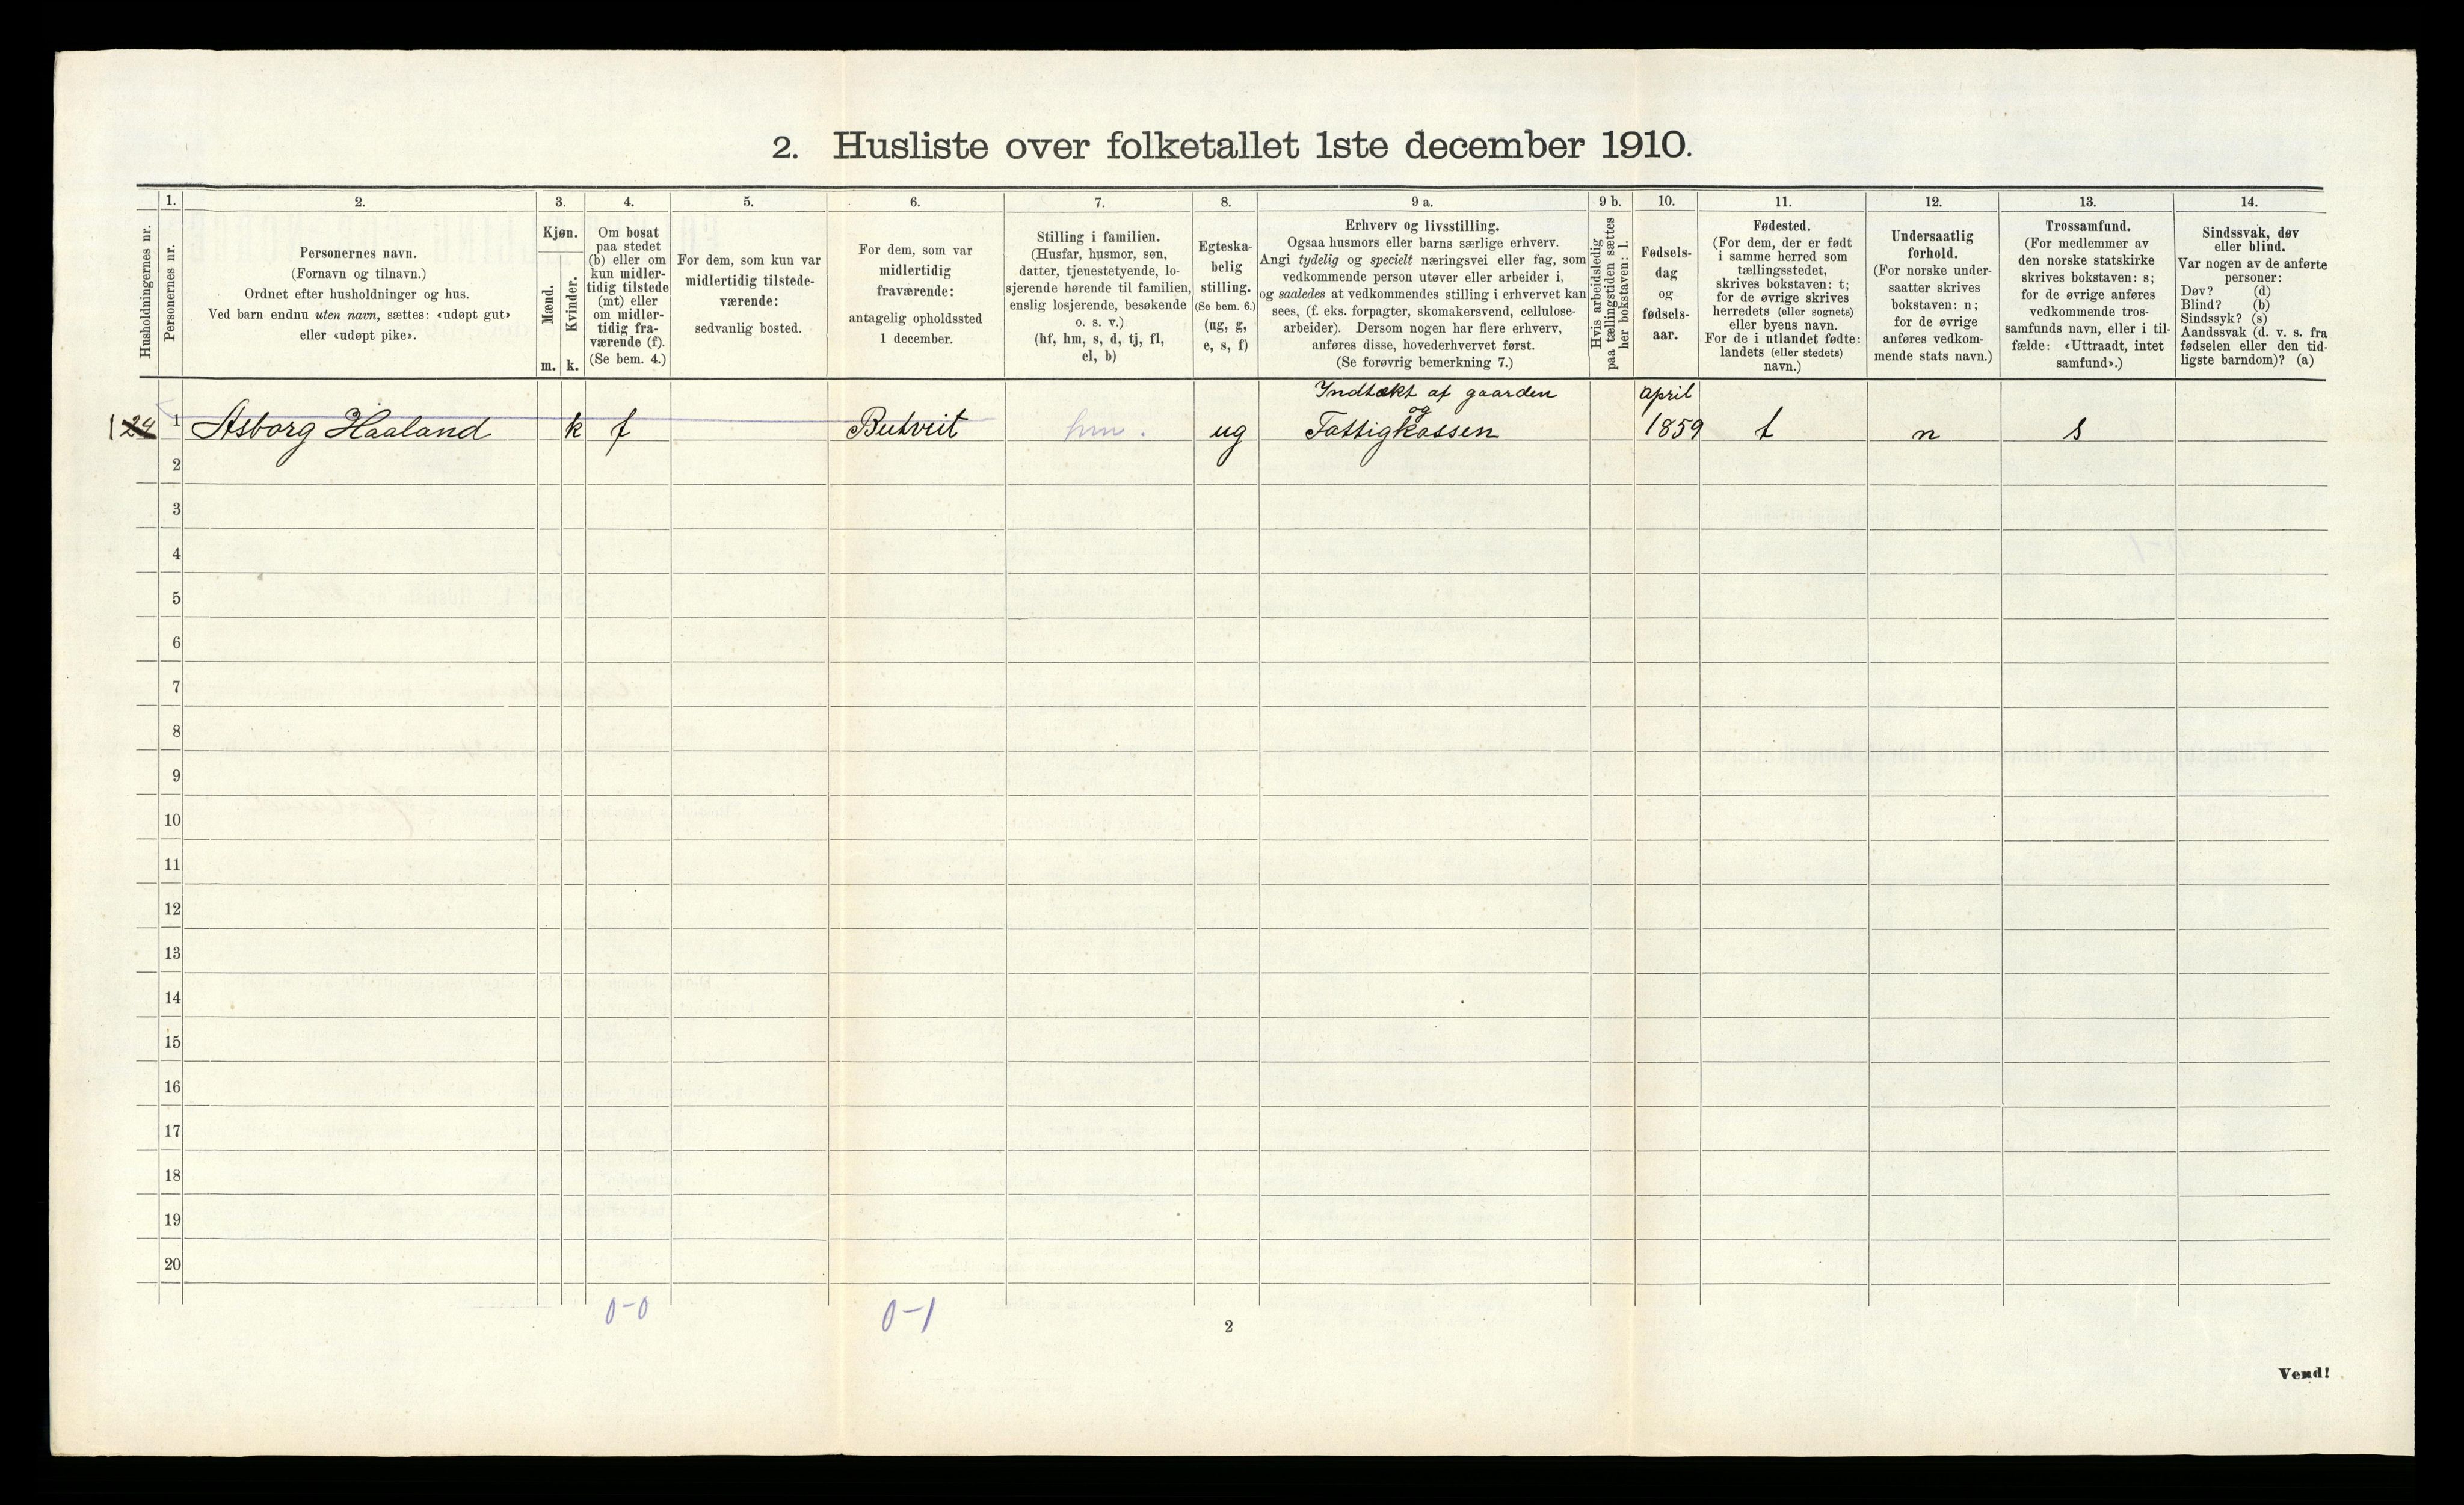 2. Husliste over folketallet 1ste december 1910.
Husholdningernes nr.
1.
Personernes nr.
2.
Personernes navn.
(Fornavn og tilnavn.)
Ordnet efter husholdninger og hus.
Ved barn endnu uten navn, sættes: «udøpt gut»
eller «udøpt pike».
3.
Kjøn.
Mænd.
m.
Kvinder.
k.
4.
Om bosat
paa stedet
(b) eller om
kun midler-
tidig tilstede
(mt) eller
om midler-
tidig fra-
værende (f).
(Se bem. 4.)
5.
For dem, som kun var
midlertidig tilstede-
værende:
sedvanlig bosted.
6.
For dem, som var
midlertidig
fraværende:
antagelig opholdssted
1 december.
7.
Stilling i familien.
(Husfar, husmor, søn,
datter, tjenestetyende, lo-
sjerende hørende til familien,
enslig losjerende, besøkende
o. s. v.)
(hf, hm, s, d, tj, fl,
el, b)
8.
Egteska-
belig
stilling.
(Se bem. 6.)
(ug, g,
e, s, f)
9 a.
Erhverv og livsstilling.
Ogsaa husmors eller barns særlige erhverv.
Angi tydelig og specielt næringsvei eller fag, som
vedkommende person utøver eller arbeider i,
og saaledes at vedkommendes stilling i erhvervet kan
sees, (f. eks. forpagter, skomakersvend, cellulose-
arbeider). Dersom nogen har flere erhverv,
anføres disse, hovederhvervet først.
(Se forøvrig bemerkning 7.)
9 b.
Hvis arbeidsledig
paa tællingstiden sættes
her bokstaven: l.
10.
Fødsels-
dag
og
fødsels-
aar.
11.
Fødested.
(For dem, der er født
i samme herred som
tællingsstedet,
skrives bokstaven: t;
for de øvrige skrives
herredets (eller sognets)
eller byens navn.
For de i utlandet fødte:
landets (eller stedets)
navn.)
12.
Undersaatlig
forhold.
(For norske under-
saatter skrives
bokstaven: n;
for de øvrige
anføres vedkom-
mende stats navn.)
13.
Trossamfund.
(For medlemmer av
den norske statskirke
skrives bokstaven: s;
for de øvrige anføres
vedkommende tros-
samfunds navn, eller i til-
fælde: «Uttraadt, intet
samfund».)
14.
Sindssvak, døv
eller blind.
Var nogen av de anførte
personer:
Døv? (d)
Blind? (b)
Sindssyk? (s)
Aandssvak (d. v. s. fra
fødselen eller den tid-
ligste barndom)? (a)
Indtækt af gaarden april
og
1 24 1 Asborg Haaland k f Butveit hm. ug Fattigkassen 1859 t n s
2
3
4
5
6
7
8
9
10
11
12
13
14
15
16
17
18
19
20
0-0 0-1
2
Vend!